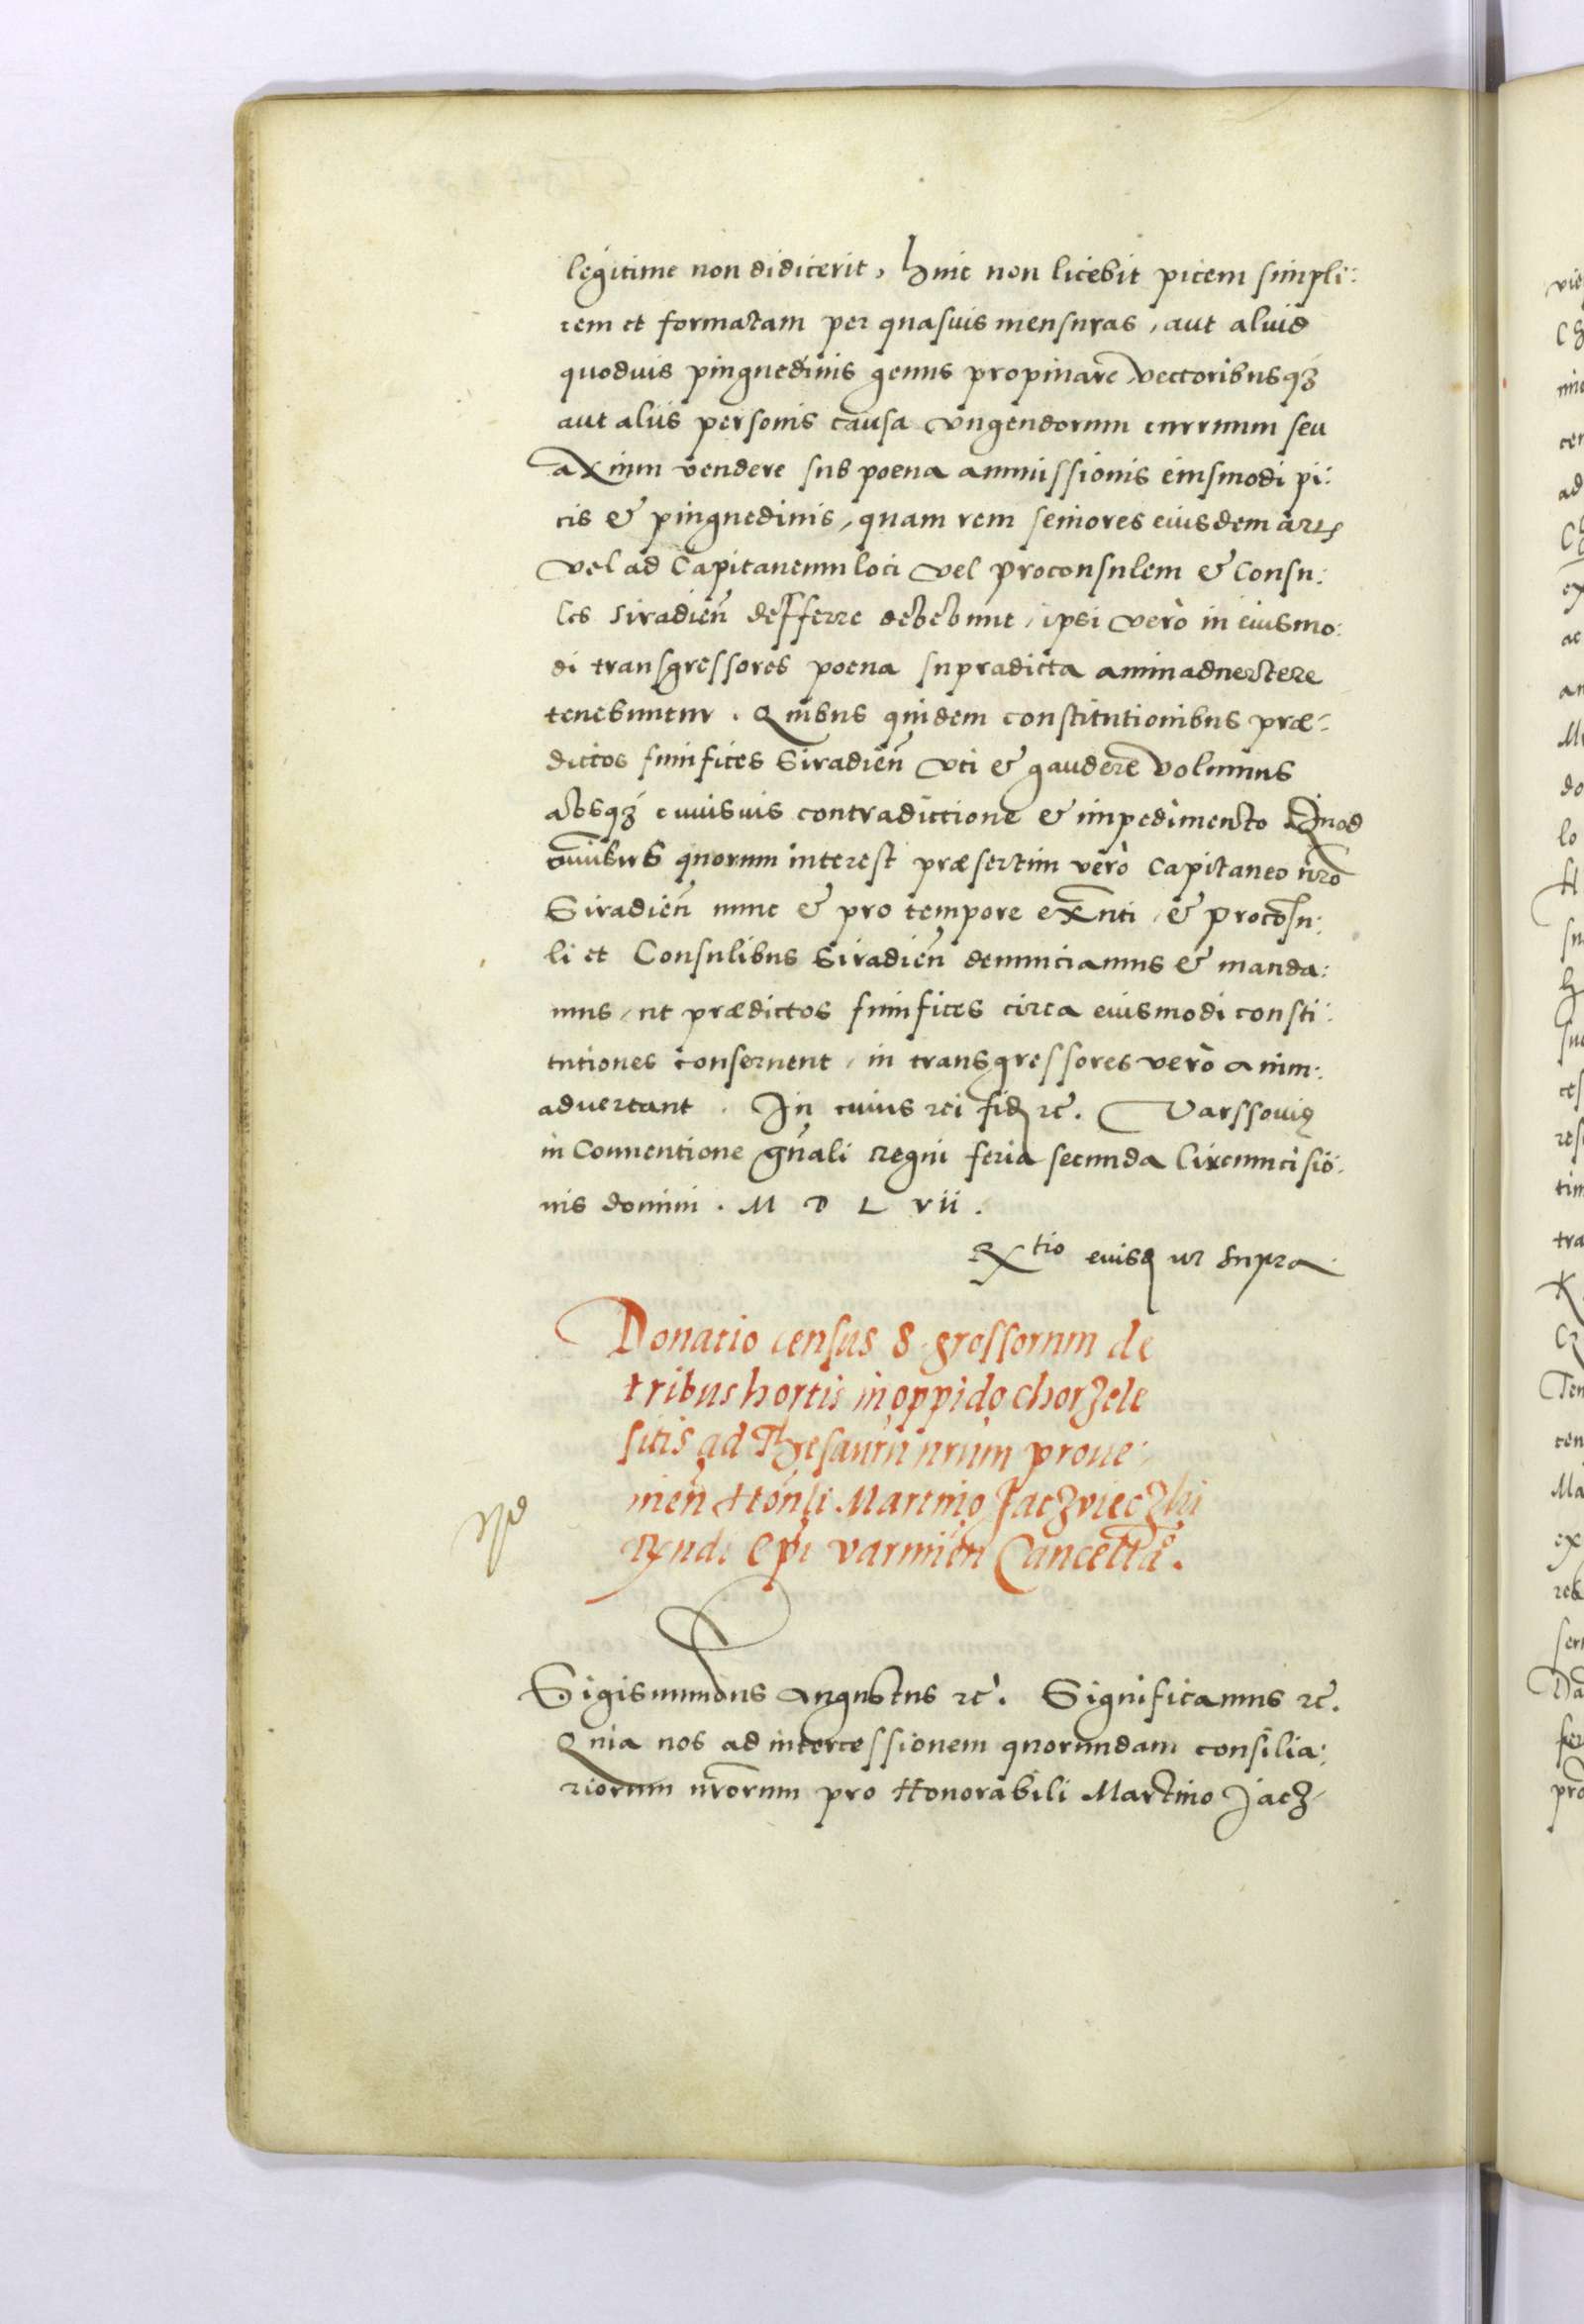 legitime non didicerit, huic non licebit picem simpli:
cem et formatam per quasuis mensuras, aut aliud
quoduis pinguedinis genus propinare vectoribusqꝫ
aut aliis personis causa vngendorum curruum seu
axium vendere sub poena ammissionis eiusmodi pi:
cis & pinguedinis, quam rem seniores eiusdem artꝭ
vel ad Capitaneum loci vel proconsulem & Consu:
les Siradien̄ defferre debebunt, ipsi verò in eiusmo:
di transgressores poena supradicta animaduertere
tenebuntur. Quibus quidem constitutionibus præ:
dictos funifices Siradien̄ vti & gaudere volumus
absqꝫ cuiusuis contradictione & impedimento Quod
om̄ibus quorum interest præsertim verò Capitaneo nr̄o
Siradien̄ nunc & pro tempore ex̄nti, & procōsu:
li et Consulibus Siradien̄ denunciamus & manda:
mus, ut prædictos funifices circa eiusmodi consti:
tutiones conseruent, in transgressores verò anim:
aduertant. In cuius rei fidꝫ ꝛc̄. Varssouię
in Conuentione gn̄ali Regni feria secunda Circumcisio:
nis domini. M D L vii.
Rtio eiusd ut supra
Donatio census 8 grossorum de
tribus hortis in oppido Chorzele
sitis ad Thesaurū nrūm proue:
nien̄ Hon̄li Martino Jaczvieczki
Epi varmien̄ Cancella.
Sigismundus Augustus ꝛc̄. Significamus ꝛc̄.
Quia nos ad intercessionem quorundam consilia:
riorum nr̄orum pro Honorabili Martino Jacz